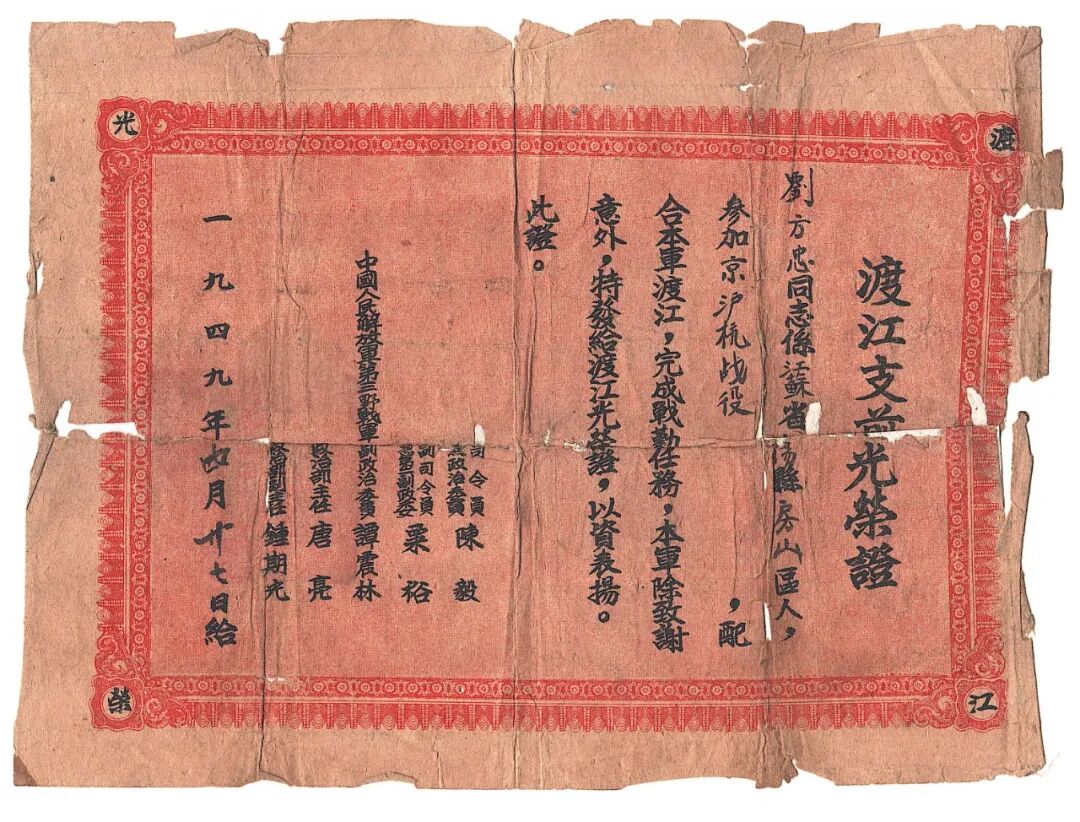 渡江支前光榮證
劉方忠同志係江蘇省 陽縣房山區人，
參加京沪杭战役，配
合本軍渡江，完成戰勤任務，本軍除致謝
意外，特發給渡江光榮證，以資表揚。
此證。
中國人民解放軍第三野戰軍
司令員
兼政治委員
陳毅
副司令員
兼第二副政委
粟裕
副政治委員譚震林
政治部主任唐亮
政治部副主任鍾期光
一九四九年 月廿七日給
渡
江
光
榮